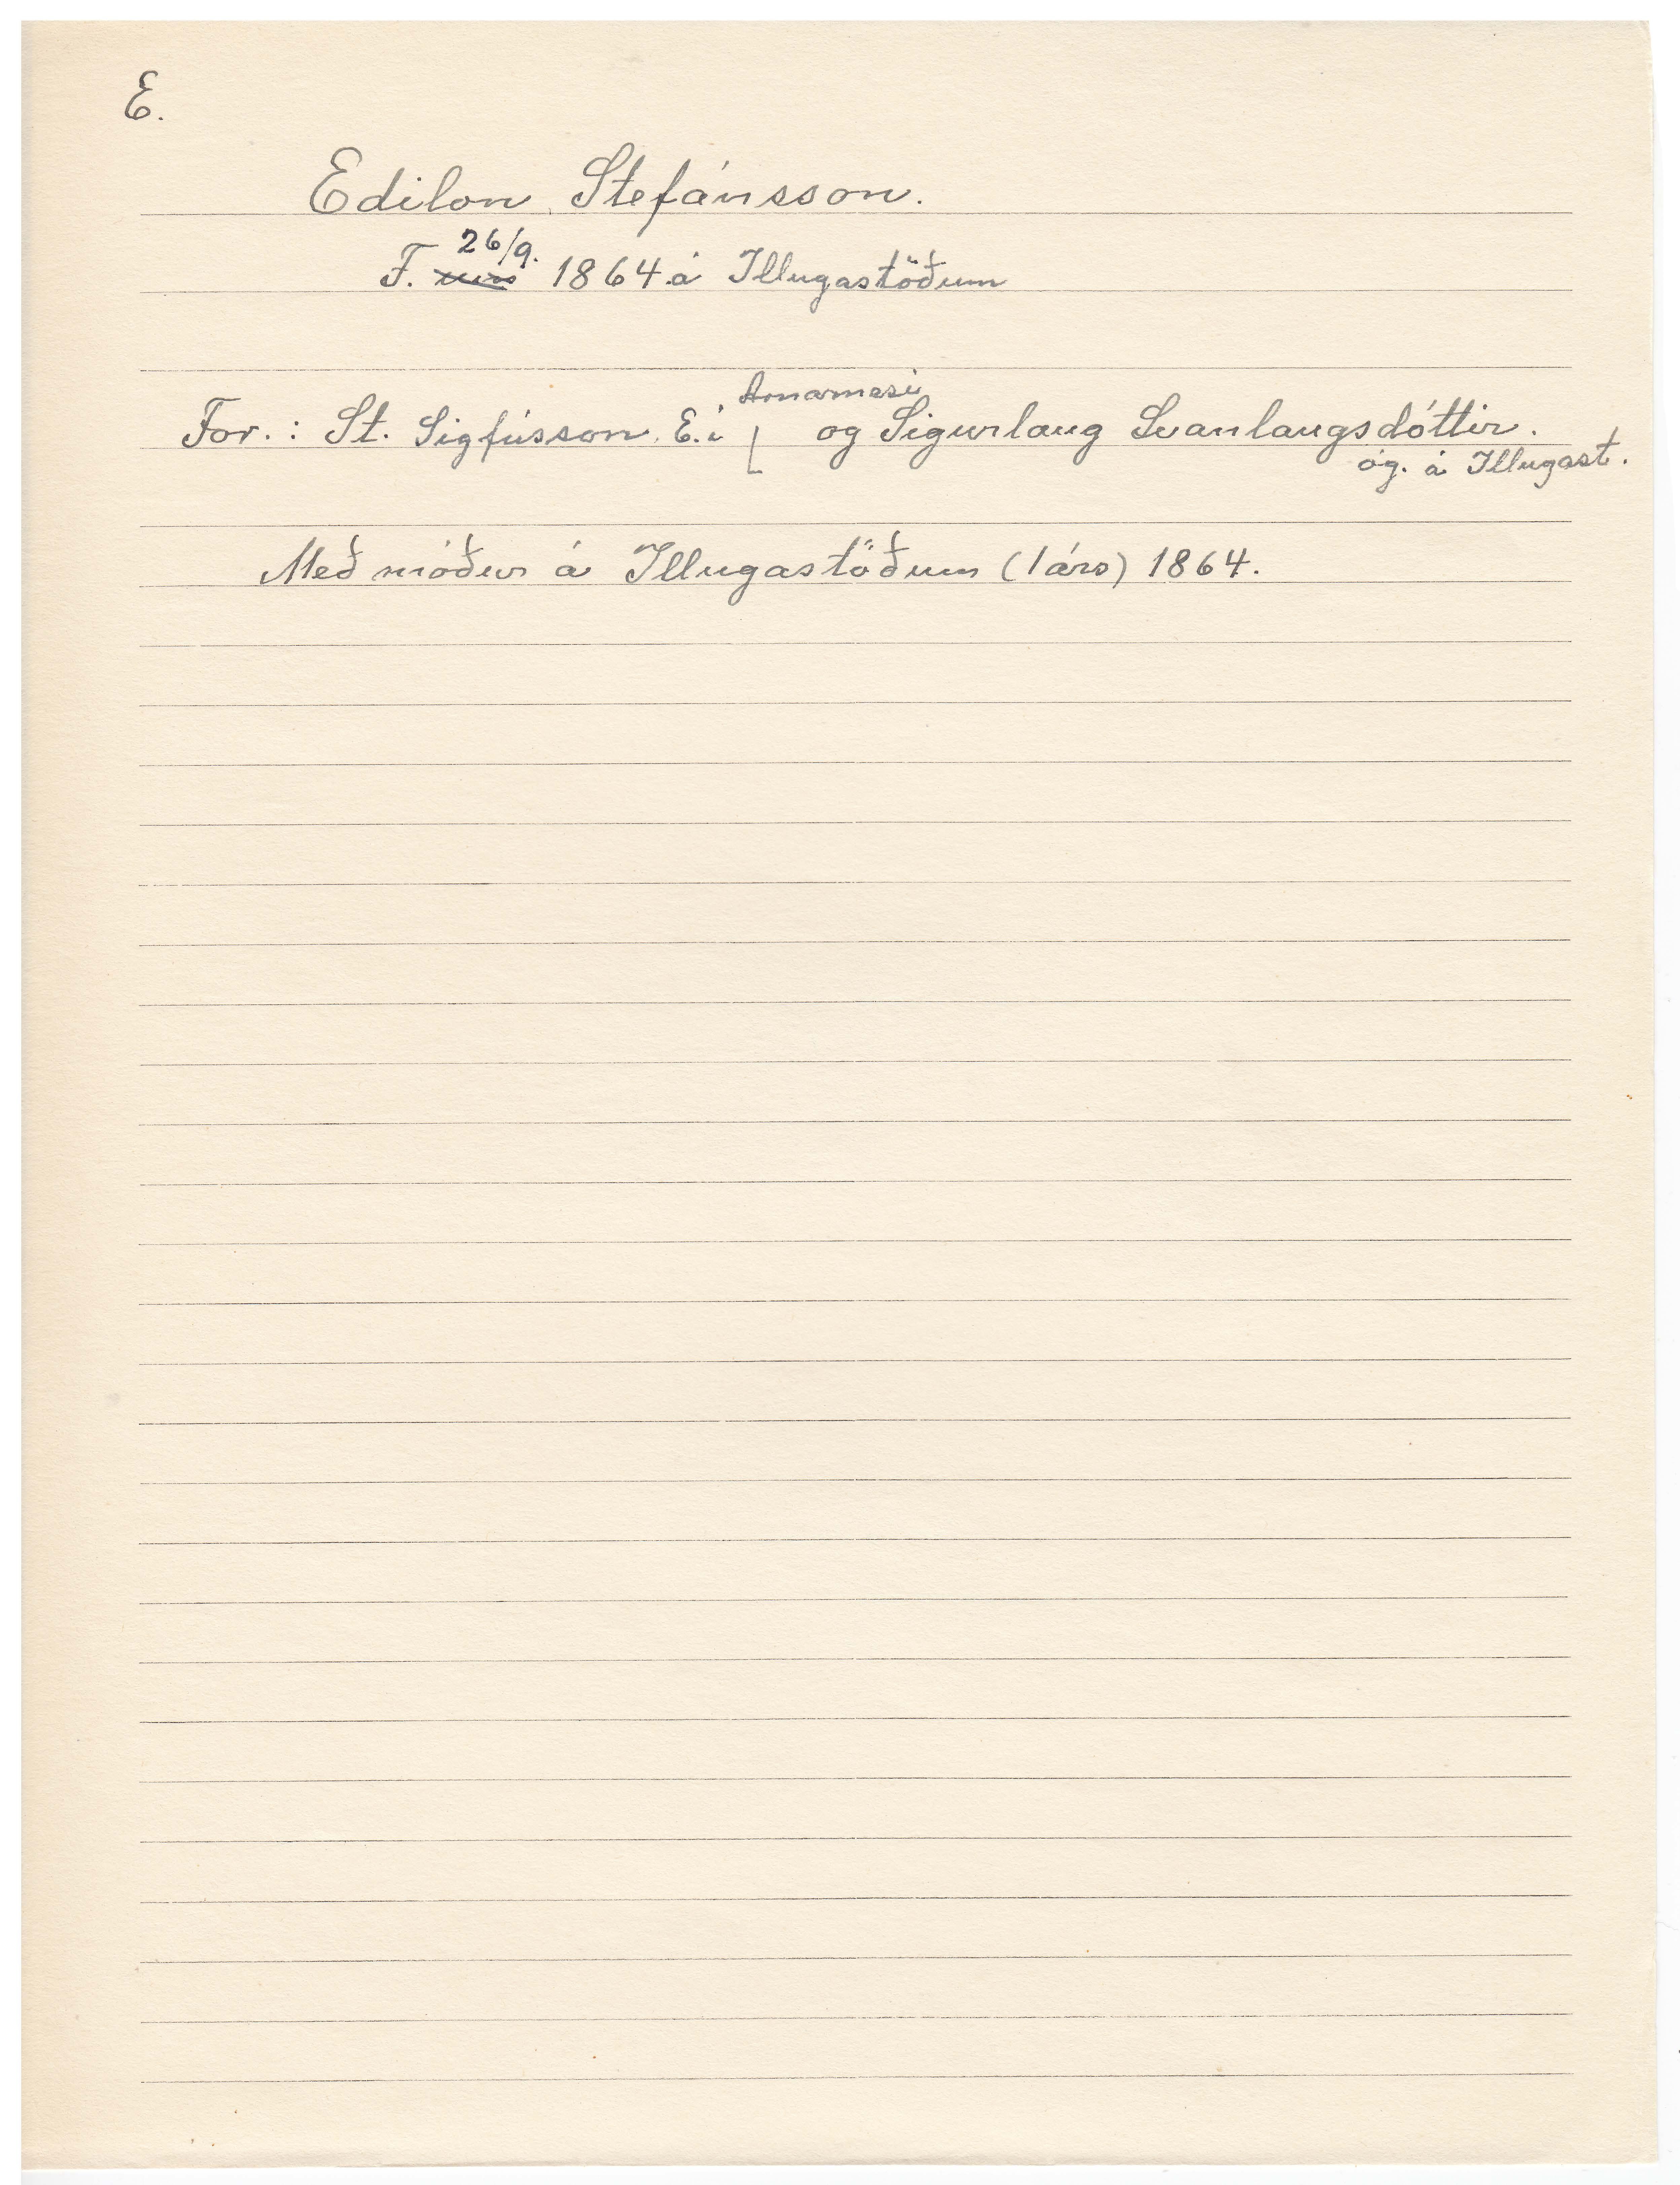 E.
Edilon Stefánsson.
26/9.
F. 1864 á Illugastöðum
Arnarnesi
For.: St. Sigfússon E. í og Sigurlaug Svanlaugsdóttir.
óg. á Illugast.
Með móður á Illugastöðum (1 árs) 1864.